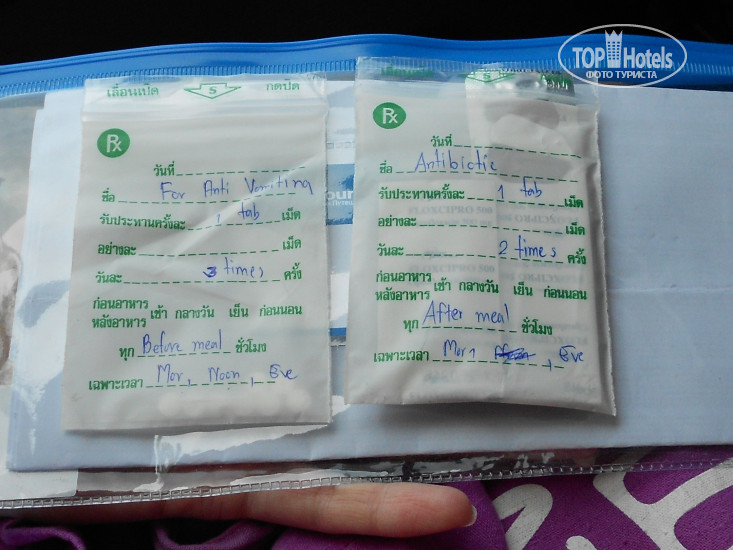 TOP Hotels
ФОТО ТУРИСТА
เลื่อนเปิด S กดปิด
Rx
วันที่
ชื่อ For Anti Vomiting
รับประทานครั้งละ 1 tab เม็ด
อย่างละ เม็ด
วันละ 3 times ครั้ง
ก่อนอาหาร
หลังอาหาร เช้า กลางวัน เย็น ก่อนนอน
ทุก Before meal ชั่วโมง
เฉพาะเวลา Mor, Noon, Eve
S
Rx
วันที่
ชื่อ Antibiotic
รับประทานครั้งละ 1 tab เม็ด
อย่างละ เม็ด
วันละ 2 times ครั้ง
ก่อนอาหาร
หลังอาหาร เช้า กลางวัน เย็น ก่อนนอน
ทุก After meal ชั่วโมง
เฉพาะเวลา Morn, Eve